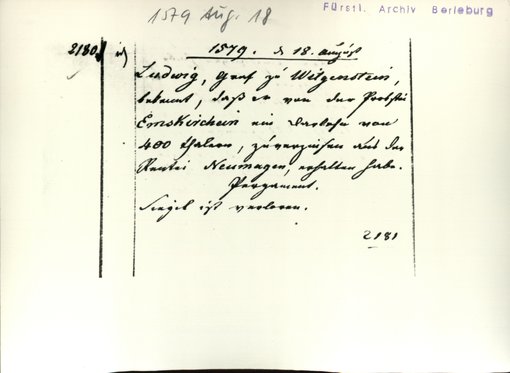 1579 Aug. 18
Fürstl. Archiv Berleburg
2180
1579. d 18. August
Ludwig, Graf zu Witgenstein,
bekennt, daß er von der Probstei
Emskirchein ein Darlehn von
400 Thalern, zu verzinsen aus der
Rentei Neumagen, erhalten habe.
Pergament.
Siegel ist verloren.
2181